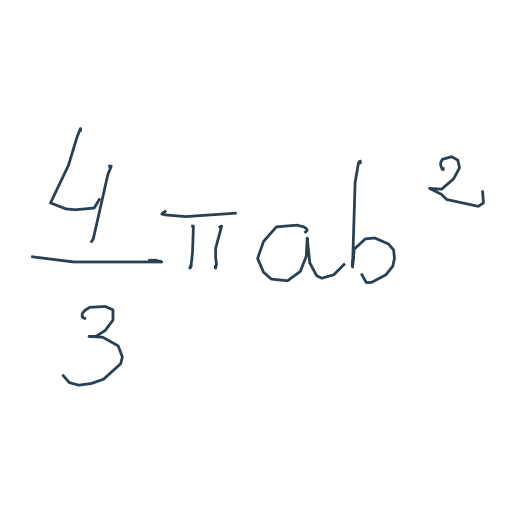 \frac{4}{3}\pi ab^2